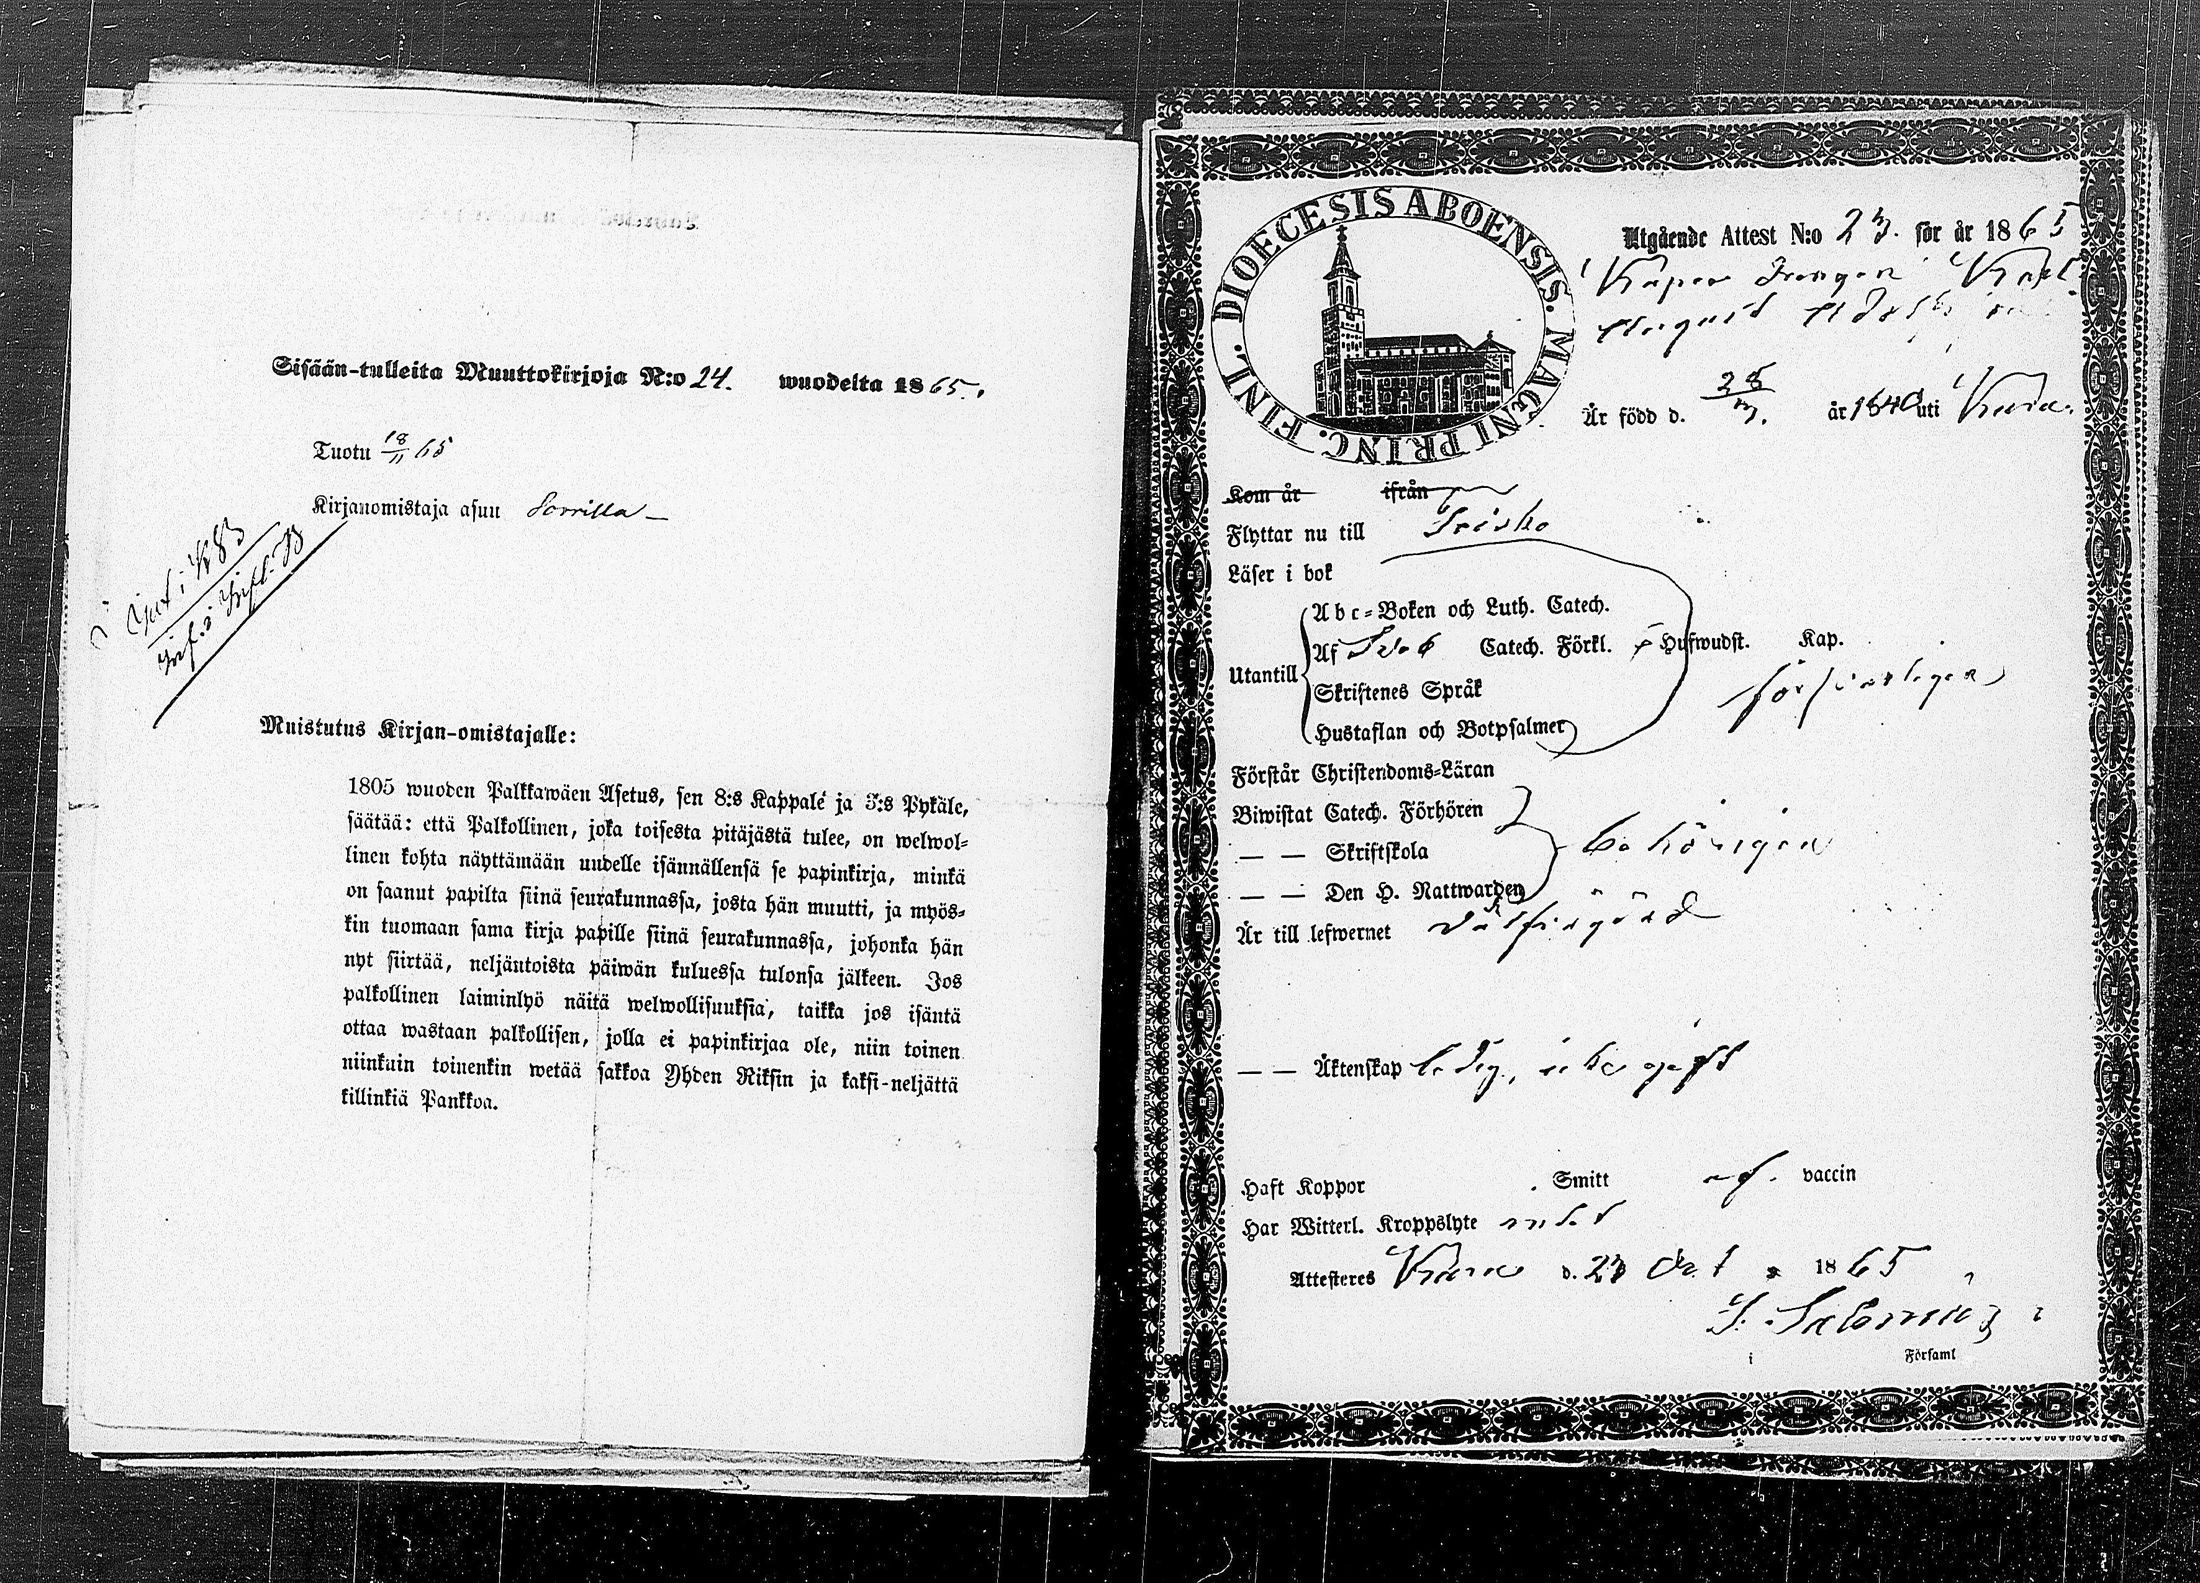 Sisään-tulleita Muuttokirjoja N:o 24. wuodelta 1865.
Tuotu 18/11 65
Kirjanomistaja asuu Sorrilla
Muistutus Kirjan-omistajalle:
1805 wuoden Palkkawäen Asetus, sen 8:s Kappale ja 5:s Pykäle,
säätää: että Palkollinen, joka toisesta pitäjästä tulee, on welwol=
linen kohta näyttämään uudelle isännällensä se papinkirja, minkä
on saanut papilta siinä seurakunnassa, josta hän muutti, ja myös=
kin tuomaan sama kirja papille siinä seurakunnassa, johonka hän
nyt siirtää, neljäntoista päiwän kuluessa tulonsa jälkeen. Jos
palkollinen laiminlyö näitä welwollisuuksia, taikka jos isäntä
ottaa wastaan palkollisen, jolla ei papinkirjaa ole, niin toinen
niinkuin toinenkin wetää sakkoa Yhden Riksin ja kaksi-neljättä
killinkiä Pankkoa.
DIOECESIS ABOENSIS. MAGNI PRINC. FINL.
Utgående Attest N:o 23. för år 1865
Karl
August
Är född d. 28/3. år 1840 uti Kuru.
Kom år ifrån
Flyttar nu till Teisko
Läser i bok
Abc=Boken och Luth. Catech.
Utantill Af Sveb Catech. Förkl. Hufwudst. Kap.
försvarligen
Skriftenes Språk
Hustaflan och Botpsalmer
Förstår Christendoms=Läran
Biwistat Catech. Förhören
— — Skriftskola behörigen
— — Den H. Nattwarden
Är till lefwernet välfrägdad
— — Äktenskap ledig, obegift
Haft Koppor Smitt af vaccin
Har Witterl. Kroppslyte intet
Attesteres Kuru d. 23 Oct 1865
F. Salonius
i Församl